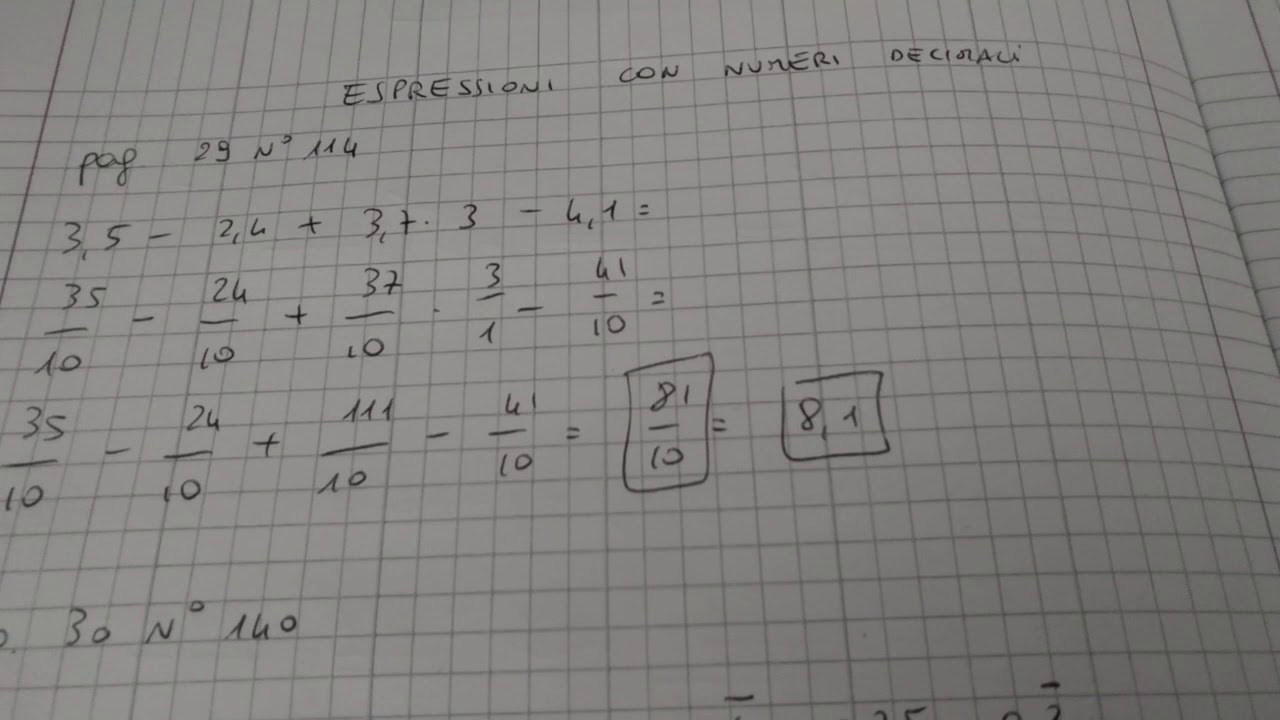 ESPRESSIONI CON NUMERI DECIMALI
pag 29 N° 114
3,5 - 2,4 + 3,7 · 3 - 4,1 =
35/10 - 24/10 + 37/10 · 3/1 - 41/10 =
35/10 - 24/10 + 111/10 - 41/10 = 81/10 = 8,1
30 N° 140